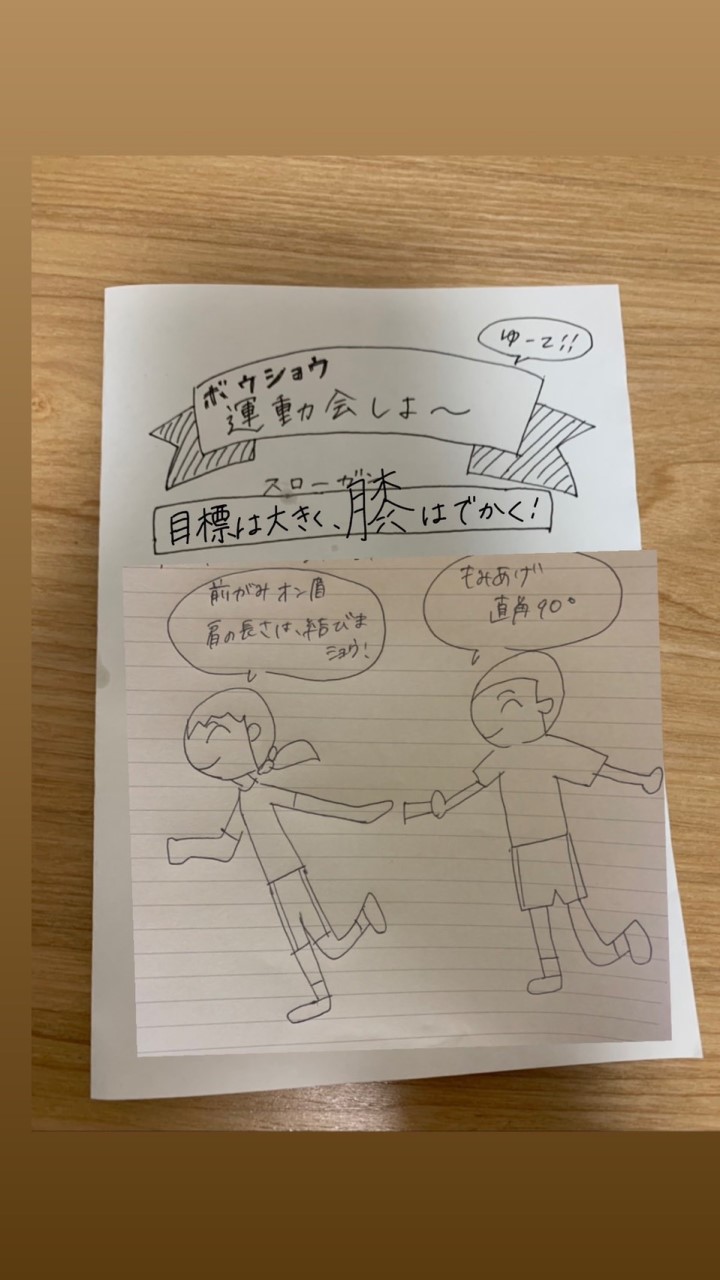 ゆーて!!
ボウショウ
運動会しよ～
スローガン
目標は大きく、膝はでかく!
前がみオン眉
肩の長さは、結びま
ショウ!
もみあげ
直角90°